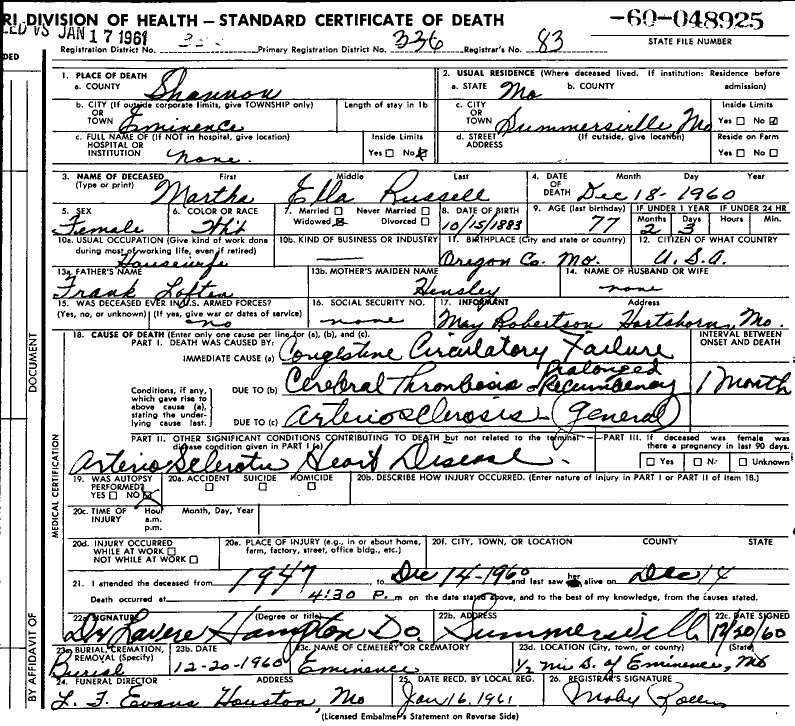 RI DIVISION OF HEALTH — STANDARD CERTIFICATE OF DEATH -60-048925
VS JAN 17 1961
Registration District No. Primary Registration District No. 336 Registrar's No. 83 STATE FILE NUMBER
DED
1. PLACE OF DEATH 2. USUAL RESIDENCE (Where deceased lived. If institution: Residence before admission)
a. COUNTY Shannon a. STATE Mo b. COUNTY
b. CITY (If outside corporate limits, give TOWNSHIP only) OR TOWN Eminence Length of stay in 1b c. CITY OR TOWN Summersville Mo Inside Limits Yes No
c. FULL NAME OF (If NOT in hospital, give location) HOSPITAL OR INSTITUTION none. Inside Limits Yes No d. STREET ADDRESS (If outside, give location) Reside on Farm Yes No
3. NAME OF DECEASED (Type or print) First Middle Last 4. DATE OF DEATH Month Day Year
Martha Ella Russell Dec 18-1960
5. SEX 6. COLOR OR RACE 7. Married Never Married Widowed Divorced 8. DATE OF BIRTH 9. AGE (last birthday) IF UNDER 1 YEAR IF UNDER 24 HR
Months Days Hours Min.
Female Wht 10/15/1883 77 2 3
10a. USUAL OCCUPATION (Give kind of work done during most of working life, even if retired) 10b. KIND OF BUSINESS OR INDUSTRY 11. BIRTHPLACE (City and state or country) 12. CITIZEN OF WHAT COUNTRY
Housewife — Oregon Co. Mo. U.S.A.
13a. FATHER'S NAME 13b. MOTHER'S MAIDEN NAME 14. NAME OF HUSBAND OR WIFE
Frank Loften Hensley none
15. WAS DECEASED EVER IN U.S. ARMED FORCES? (Yes, no, or unknown) (If yes, give war or dates of service) 16. SOCIAL SECURITY NO. 17. INFORMANT Address
no none May Robertson Hartshorn, Mo.
18. CAUSE OF DEATH (Enter only one cause per line for (a), (b), and (c). INTERVAL BETWEEN ONSET AND DEATH
PART I. DEATH WAS CAUSED BY:
IMMEDIATE CAUSE (a) Congestive Circulatory Failure
Conditions, if any, which gave rise to above cause (a), stating the underlying cause last.
DUE TO (b) Cerebral Thrombosis & Prolonged Recumbency 1 Month
DUE TO (c) Arteriosclerosis (General)
PART II. OTHER SIGNIFICANT CONDITIONS CONTRIBUTING TO DEATH but not related to the terminal disease condition given in PART I (a) PART III. If deceased was female was there a pregnancy in last 90 days.
Arterio Sclerotic Heart Disease. Yes No Unknown
19. WAS AUTOPSY PERFORMED? YES NO 20a. ACCIDENT SUICIDE HOMICIDE 20b. DESCRIBE HOW INJURY OCCURRED. (Enter nature of injury in PART I or PART II of item 18.)
20c. TIME OF INJURY Hour a.m. p.m. Month, Day, Year
20d. INJURY OCCURRED WHILE AT WORK NOT WHILE AT WORK 20e. PLACE OF INJURY (e.g., in or about home, farm, factory, street, office bldg., etc.) 20f. CITY, TOWN, OR LOCATION COUNTY STATE
21. I attended the deceased from 1947, to Dec 14-1960 and last saw her alive on Dec 14
Death occurred at 4:30 P.m on the date stated above, and to the best of my knowledge, from the causes stated.
22a. SIGNATURE (Degree or title) 22b. ADDRESS 22c. DATE SIGNED
Dr Lavere Hampton Do. Summersville 12/20/60
23a. BURIAL, CREMATION, REMOVAL (Specify) 23b. DATE 23c. NAME OF CEMETERY OR CREMATORY 23d. LOCATION (City, town, or county) (State)
Burial 12-20-1960 Eminence 1/2 mi S. of Eminence, Mo
24. FUNERAL DIRECTOR ADDRESS 25. DATE RECD. BY LOCAL REG. 26. REGISTRAR'S SIGNATURE
L. F. Evans Houston, Mo Jan 16, 1961 Moby
(Licensed Embalmer's Statement on Reverse Side)
DOCUMENT
MEDICAL CERTIFICATION
BY AFFIDAVIT OF